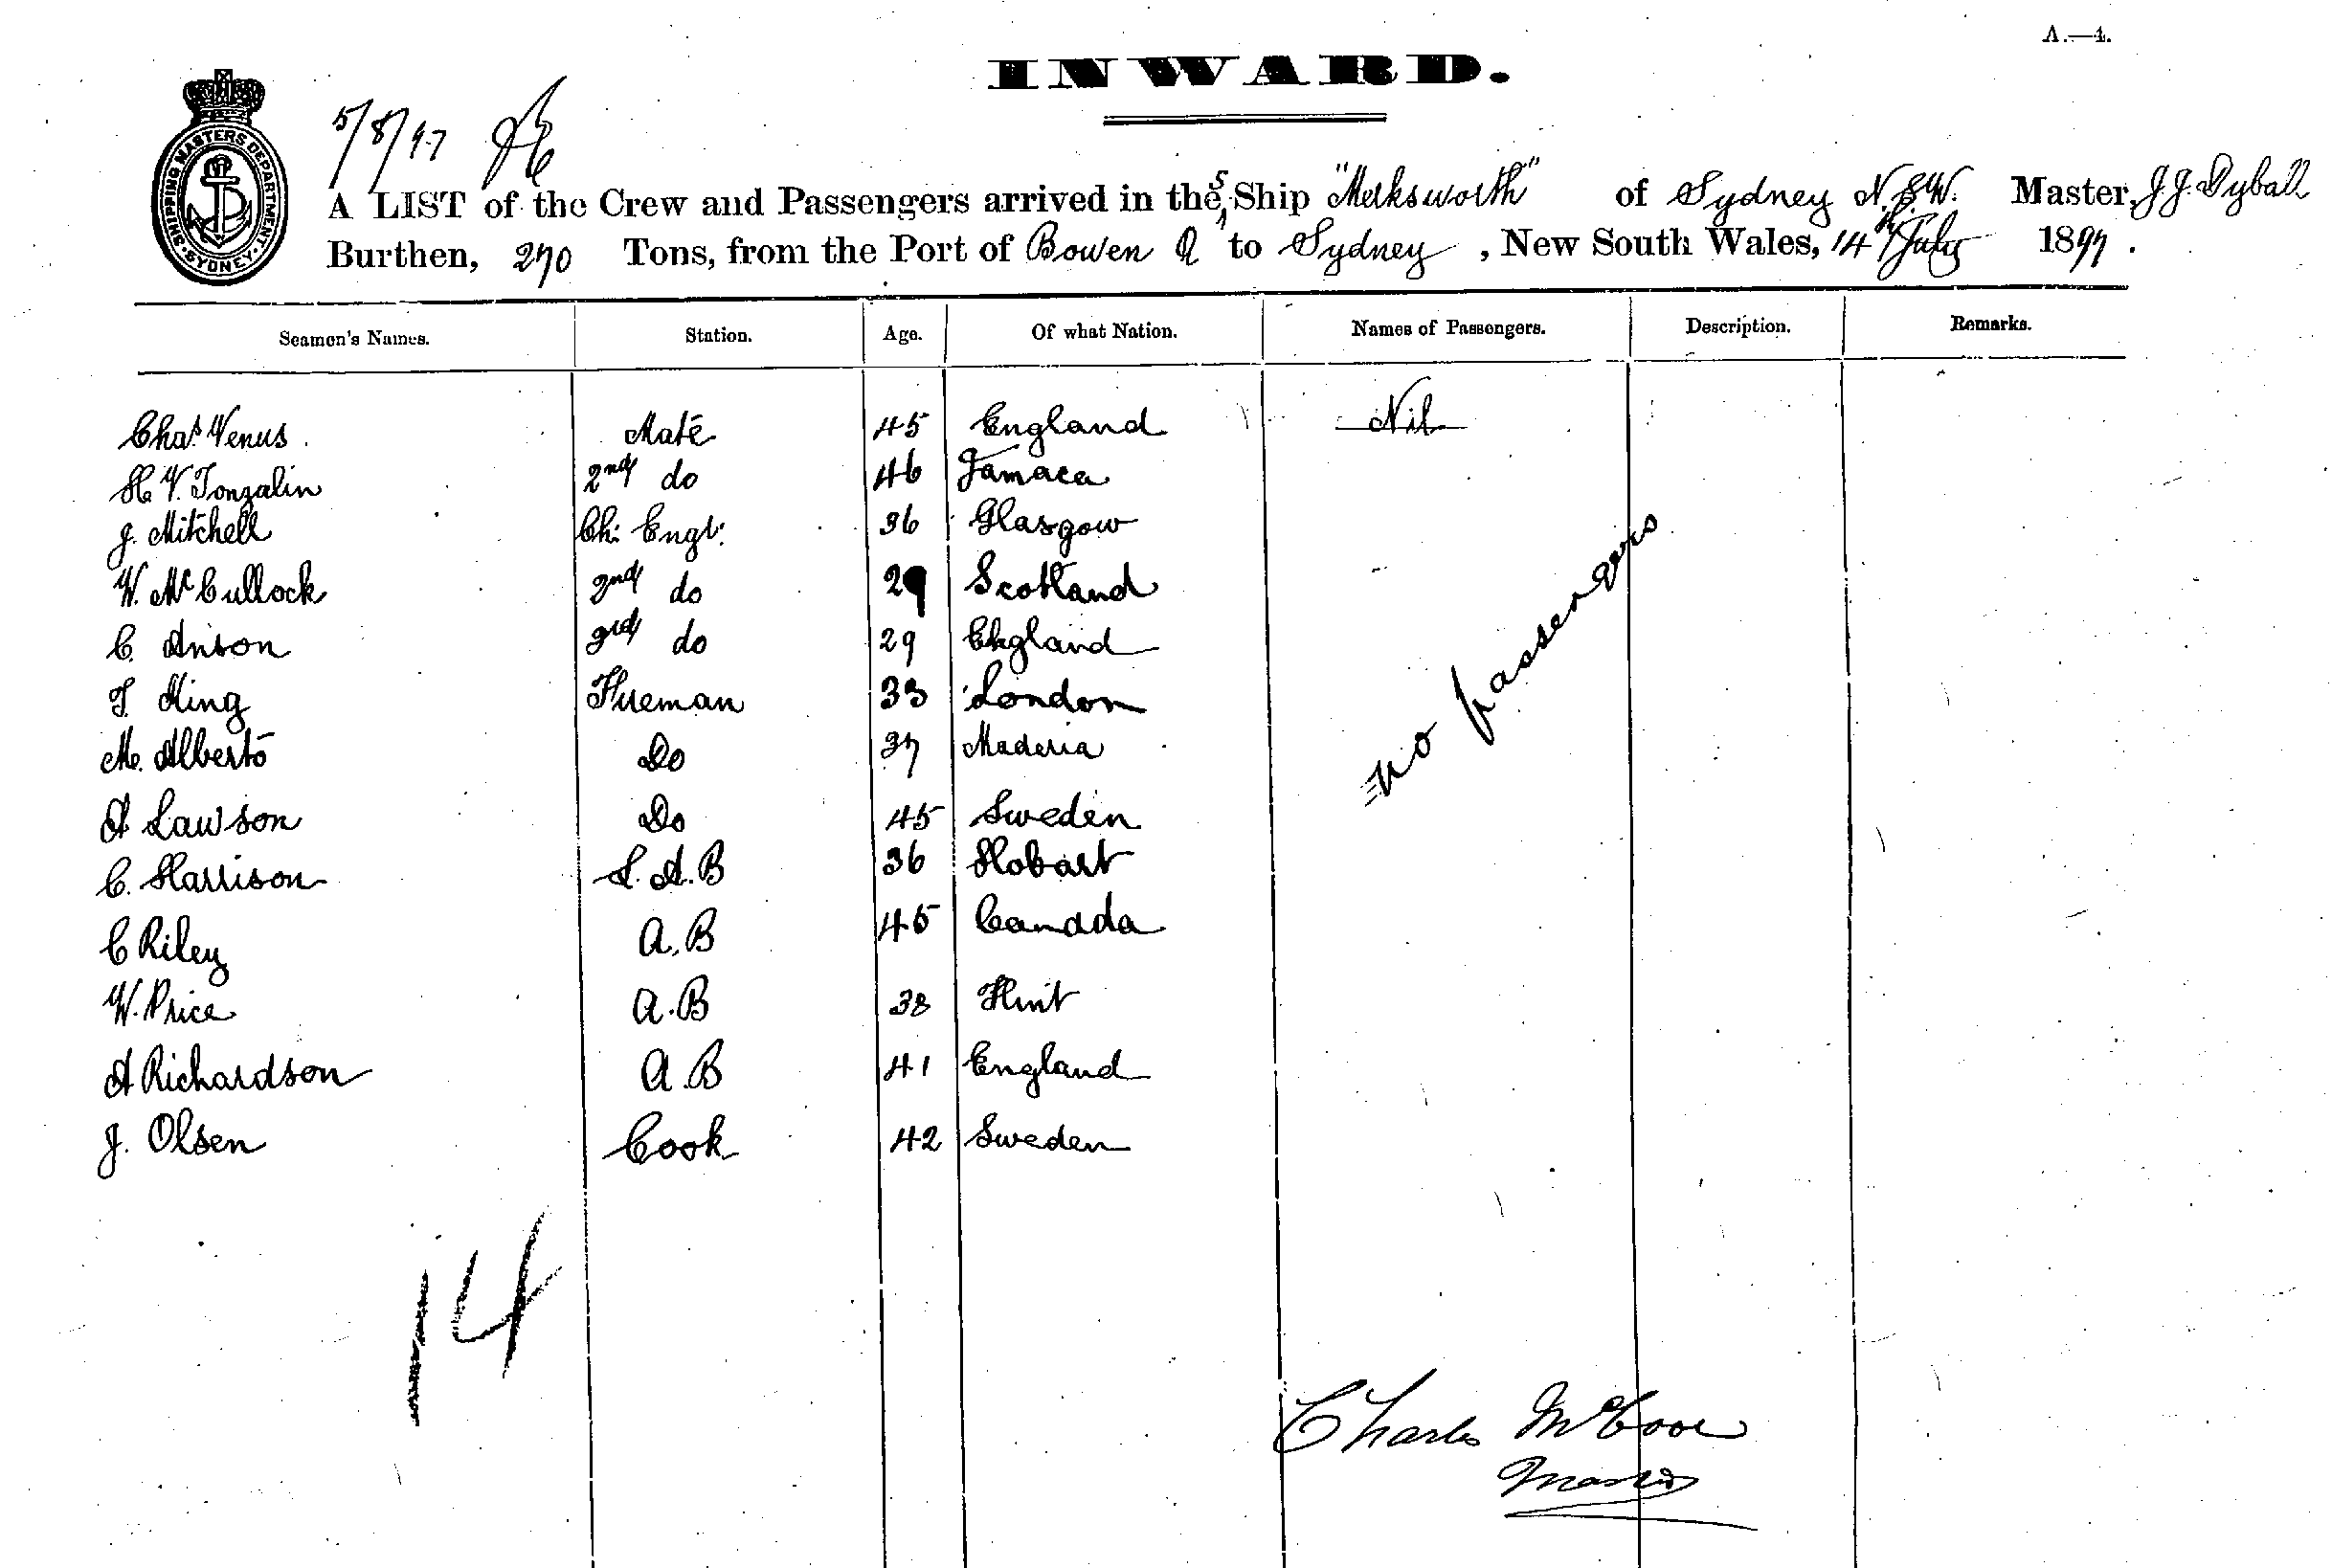 A.—4.
INWARD.
5/8/97
SHIPPING MASTERS DEPARTMENT. SYDNEY.
A LIST of the Crew and Passengers arrived in the S Ship "Merksworth" of Sydney N.S.W. Master, J.J. Dyball
Burthen, 270 Tons, from the Port of Bowen Q to Sydney, New South Wales, 14th July 1897.
Seamen's Names. Station. Age. Of what Nation. Names of Passengers. Description. Remarks.
Chas Venus Mate 45 England Nil
H V. Tonzalin 2nd do 46 Jamaca
J. Mitchell Ch: Engr: 36 Glasgow
W. McCullock 2nd do 29 Scotland
C. Anson 3rd do 29 England
T. King Fireman 33 London
M. Alberto Do 37 Maderia
A Lawson Do 45 Sweden
C. Harrison L.A.B 36 Hobart
C Riley A.B 45 Canada
W. Price A.B 38 Flint
A Richardson A.B 41 England
J. Olsen Cook 42 Sweden
no passengers
14
Charles McCooe
Master